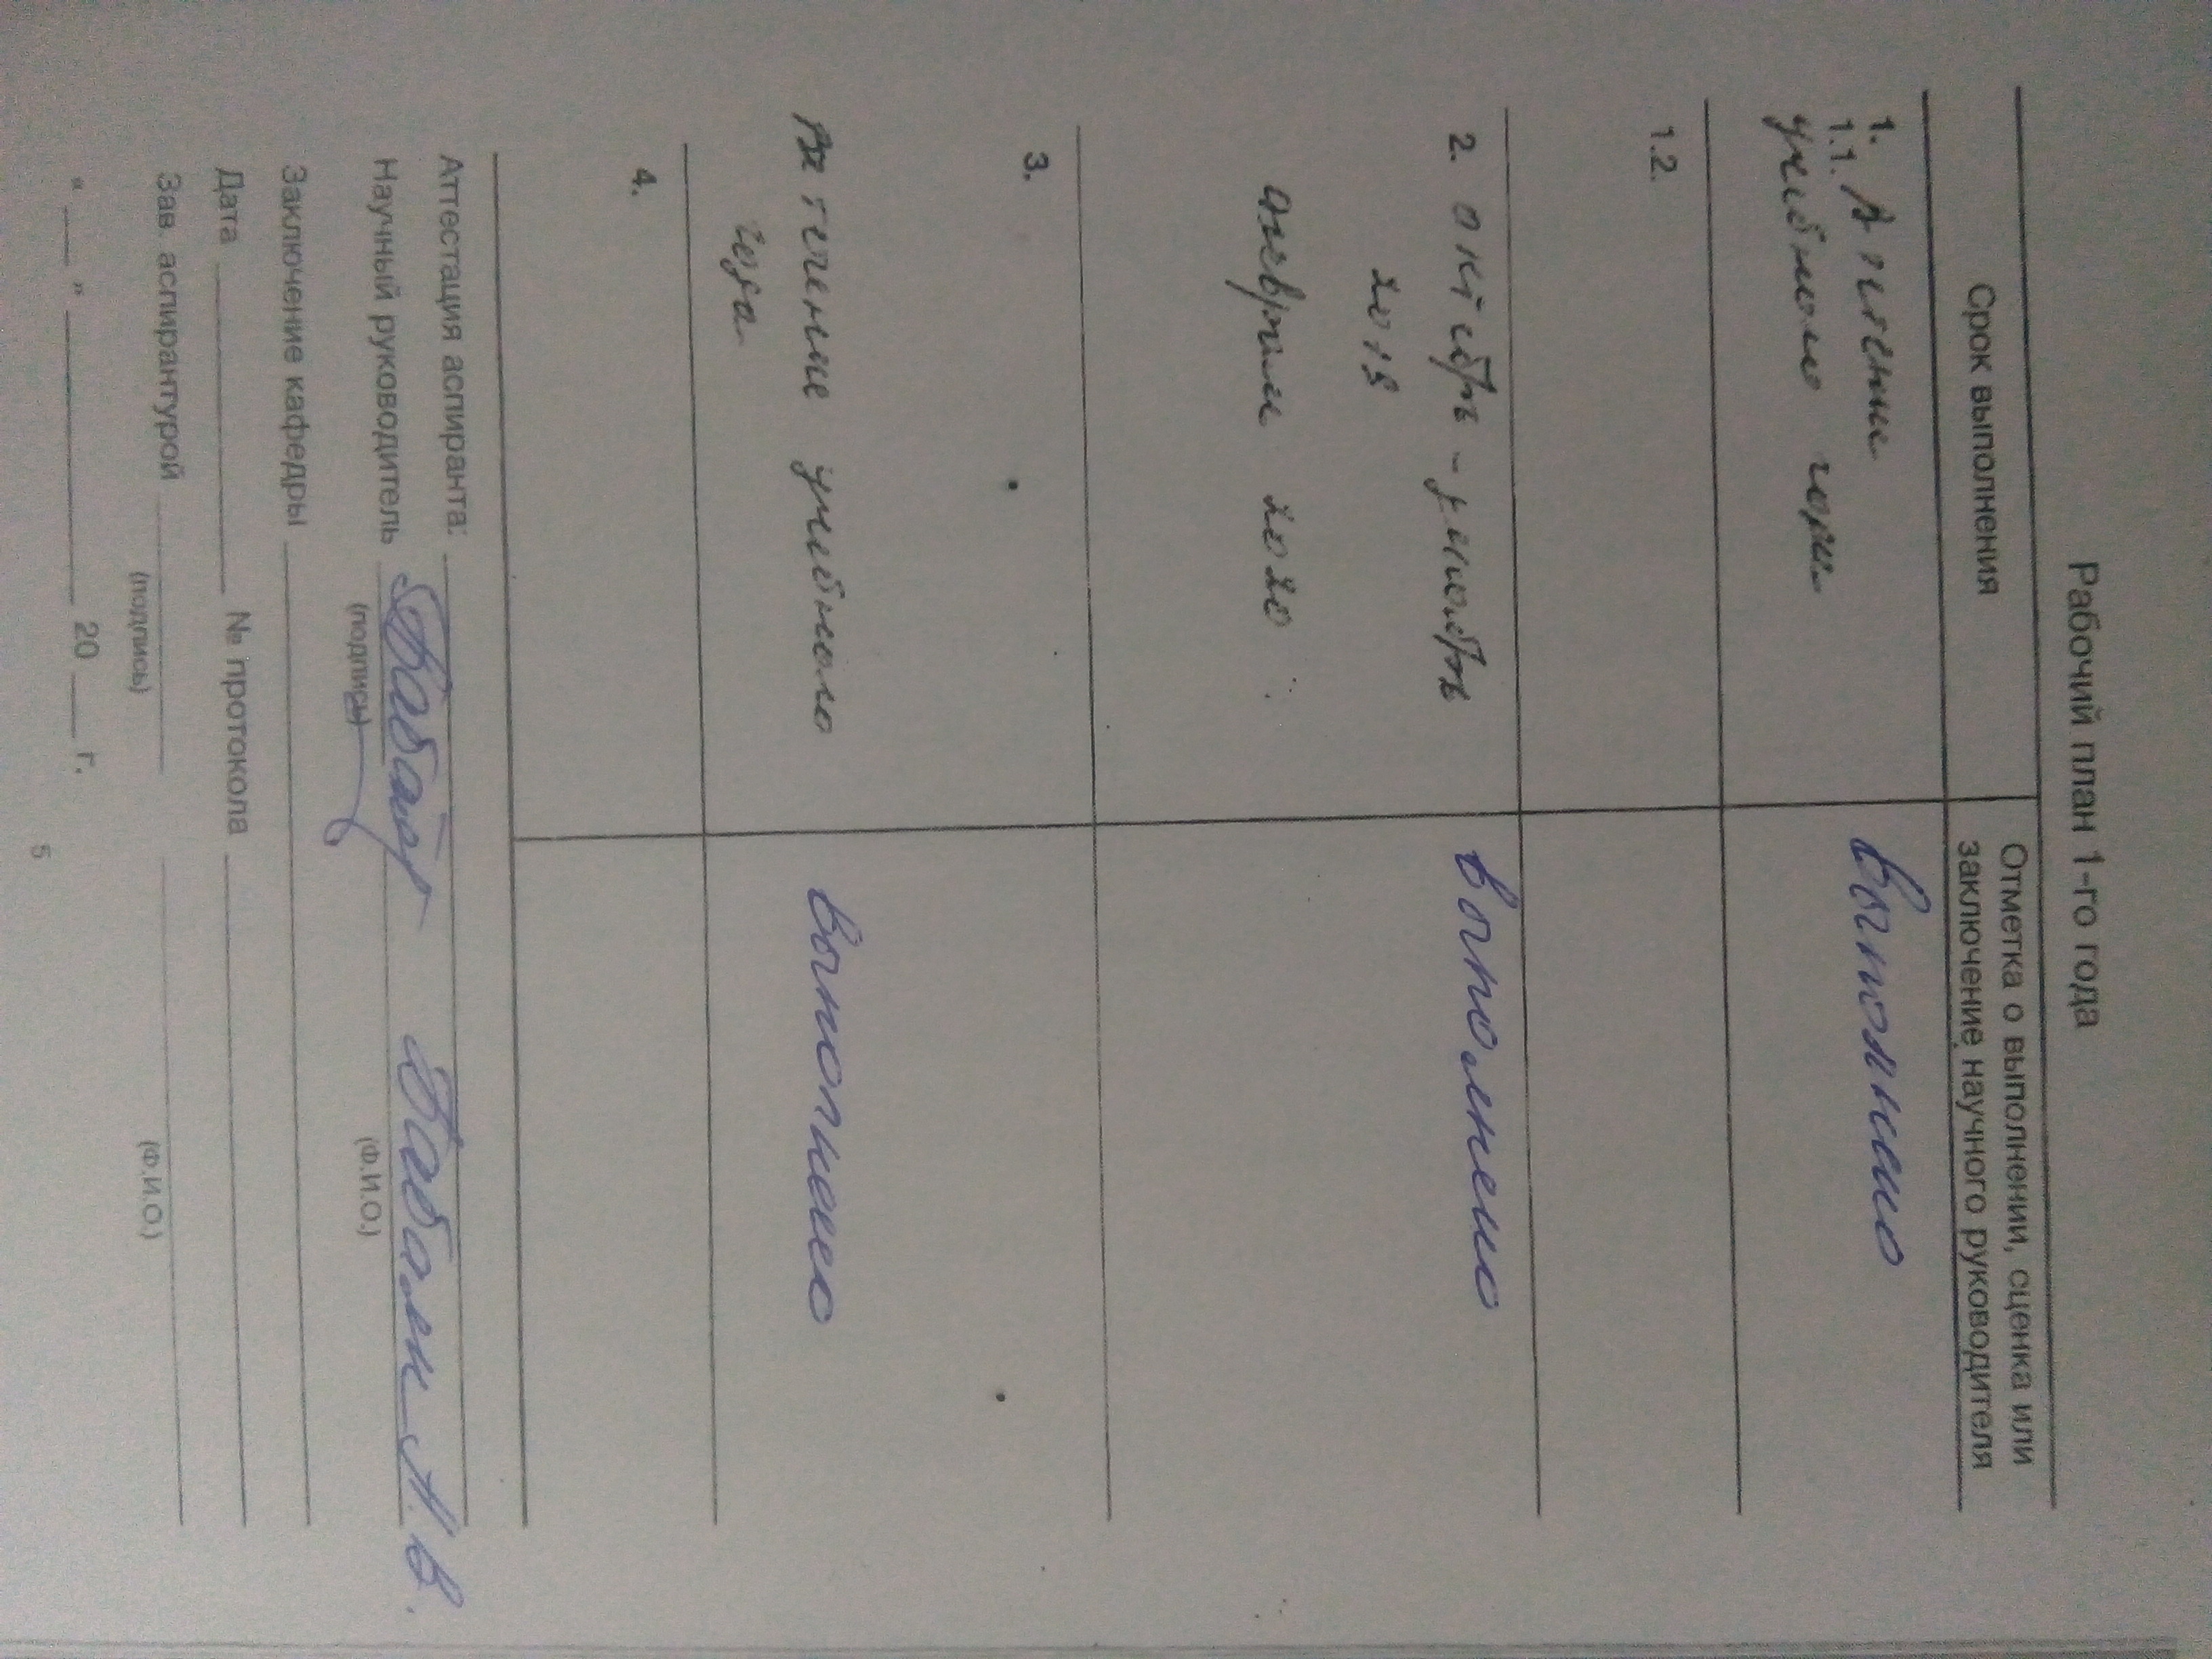 Рабочий план 1-го года
Срок выполнения
Отметка о выполнении, сценка или
заключение научного руководителя
1.
1.1. В течении
учебного года
выполнено
1.2.
2. октябрь - декабрь
2019
выполнено
2020
3.
В течение учебного
года
выполнено
4.
Аттестация аспиранта:
Научный руководитель
(подпись)
(Ф.И.О.)
Заключение кафедры
Дата № протокола
Зав. аспирантурой
(подпись)
(Ф.И.О.)
“ ” 20 г.
5